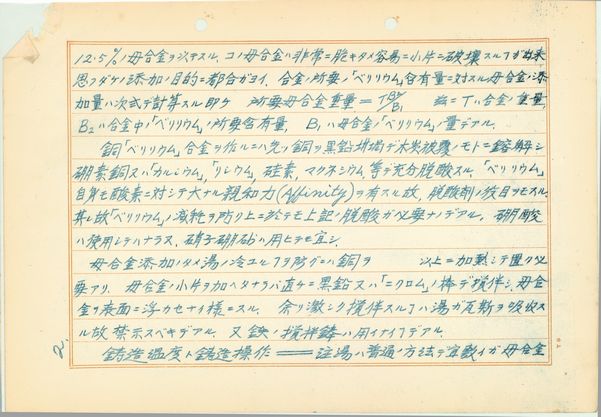 12.5%ノ母合金ヲシテスル. コノ母合金ハ非常ニ脆キタメ容易ニ小片ニ破壊スルヿガ出来
思フダケノ添加ノ目的ニ都合ガヨイ 合金ノ所要ノ「ベリリウム」含有量ニ対スル母合金ノ添
加量ハ次式デ計算スル即チ 所要母合金重量 = T B2/B1 茲ニTハ合金ノ重量,
B2ハ合金中ノ「ベリリウム」ノ所要含有量, B1ハ母合金ノ「ベリリウム」ノ量デアル.
銅「ベリリウム」合金ヲ作ルニハ先ヅ銅ヲ黒鉛坩堝デ木炭被覆ノモトニ鎔解シ
硼素銅又ハ「カルシウム」「リシウム」硅素, マグネシウム, 等デ充分脱酸スル.「ベリリウム」
自身モ酸素ニ対シテ大ナル親和力(Affinity)ヲ有スル故, 脱酸剤ノ役目ヲモスル.
其レ故「ベリリウム」ノ減耗ヲ防グ上ニ於テモ上記ノ脱酸ガ必要ナノデアル. 硼酸
ハ使用シテハナラヌ. 硝子硼砂ハ用ヒテモ宜シ.
母合金添加ノタメ湯ノ冷エルヲ防グニハ銅ヲ 以上ニ加熱シテ置ク必
要アリ. 母合金ノ小片ヲ加ヘタナラバ直チニ黒鉛又ハ「ニクロム」ノ棒デ攪拌シ, 母合
金ヲ液面ニ浮カセナイ様ニスル. 余リ激シク攪拌スルヿハ湯ガ瓦斯ヲ吸収ス
ル故禁示スベキデアル. 又鉄ノ攪拌鋳ハ用イナイヿデアル.
鋳造温度ト鋳造操作 —— 注湯ハ普通ノ方法デ宜敷イガ母合金
2.